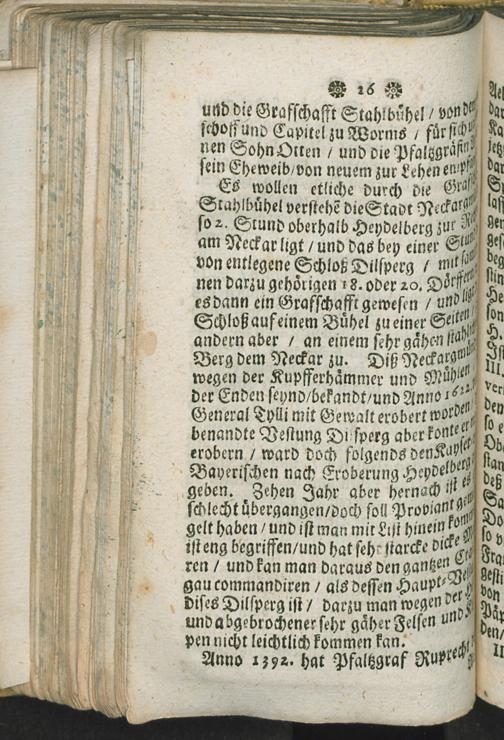 26
und die Grafschafft Stahlbühel / von dem
schoff und Capitel zu Worms / für sich u
nen Sohn Otten / und die Pfaltzgräfin
sein Eheweib / von neuem zur Lehen empf
Es wollen etliche durch die Graf
Stahlbühel verstehē die Stadt Neckarg
so 2. Stund oberhalb Heydelberg zur
am Neckar ligt / und das bey einer Stu
von entlegene Schloß Dilsperg / mit
nen darzu gehörigen 18. oder 20. Dörffern
es dann ein Grafschafft gewesen / und ligt
Schloß auf einem Bühel zu einer Seiten /
andern aber / an einem sehr gähen stahlin
Berg dem Neckar zu. Diß Neckargmün
wegen der Kupfferhämmer und Mühlen
der Enden seynd / bekandt / und Anno 1622.
General Tylli mit Gewalt erobert worden /
benandte Vestung Dilsperg aber konte er
erobern / ward doch folgends den Kayser
Bayerischen nach Eroberung Heydelberg
geben. Zehen Jahr aber hernach ist es
schlecht übergangen / doch soll Proviant
gelt haben / und ist man mit List hinein kom
ist eng begriffen / und hat sehr starcke dicke
ren / und kan man daraus den gantzen Cra
gau commandiren / als dessen Haupt-Ve
dises Dilsperg ist / darzu man wegen der
und abgebrochener sehr gäher Felsen und
pen nicht leichtlich kommen kan.
Anno 1392. hat Pfaltzgraf Ruprecht